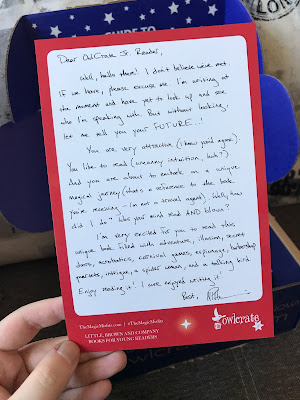 GUIDE TO
Dear OwlCrate Jr. Reader,
Well, hello there! I don't believe we've met.
If we have, please excuse me. I'm writing at
the moment and have yet to look up and see
who I'm speaking with. But without looking,
let me tell you your FUTURE...!
You are very attractive (I knew you'd agree).
You like to read (uncanny intuition, huh?)
And you are about to embark on a unique
magical journey (that's a reference to the book
you're receiving – I'm not a travel agent). Well, how
did I do? Was your mind READ AND blown?
I'm very excited for you to read this
unique book filled with adventure, illusions, secret
doors, acrobatics, carnival games, espionage, barbershop
quartets, intrigue, a spider woman, and a talking bird.
Enjoy reading it! I sure enjoyed writing it!
Best,
TheMagicMisfits.com | #TheMagicMisfits
LITTLE, BROWN AND COMPANY
BOOKS FOR YOUNG READERS
owlcrate
JR